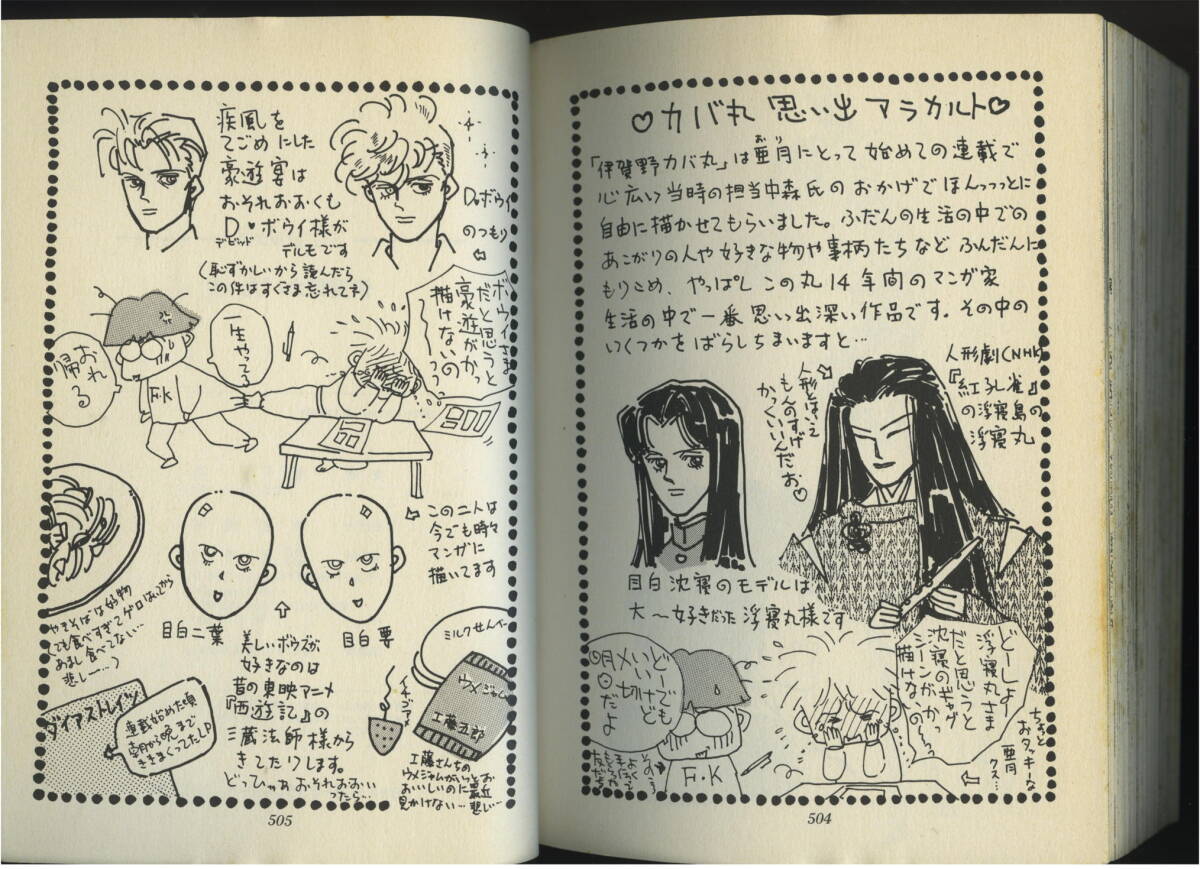 ♡カバ丸 思い出 アラカルト♡
「伊賀野カバ丸」は亜月にとって 始めての連載で
おり
心広い 当時の担当中森氏の おかげで ほんっっっとに
自由に描かせてもらいました。ふだんの生活の中での
あこがりの人や好きな物や事柄たちなど ふんだんに
もりこめ、やっぱし この丸14年間のマンガ家
生活の中で一番 思い出深い作品です。その中の
いくつかをばらしちまいますと…
人形劇(NHK)
『紅孔雀』
の浮寝島の
浮寝丸
人形とはいって
もんのすげ
かっくいいんだお♡
目白 沈寝のモデルは
大〜好きだった 浮寝丸様です
どーしよ
浮寝丸さま
だと思うと
沈寝のギャグ
シーンが、かっ
描けないの〜っ
ちょっと
おタッキーな
亜月
クス…
どーでも
いいけど
〆切
明日
だよ
F・K
504
疾風を
てごめにした
豪遊宴は
おそれおおくも
D♥ボウイ様が
デビッド
デルモです
(恥ずかしいから 読んだら
この件はすぐさま忘れてネ)
D♥ボウイ
のつもり
ボウイさま
だと思うと
豪遊がかっ
描けないの〜っ
一生やってろ
おれ
帰る
F・K
この二人は
今でも時々
マンガに
描いてます
目白二葉
目白要
美しいボウズが
好きなのは
昔の東映アニメ
『西遊記』の
三蔵法師様から
きてたりします。
どっひゃぁ おそれおおい
ったら…
やきそばは好物
(でも食べすぎてゲロはいてから
あまし食べてない…
悲しー…)
ダイアストレイツ
連載始めた頃
朝から晩まで
ききまくってたLP
イチゴアメ
ミルクせんべー
ウメジャム
工藤五郎
工藤さんちの
ウメジャムがいっとお
おいしいのに最近
見かけない…悲し…
505